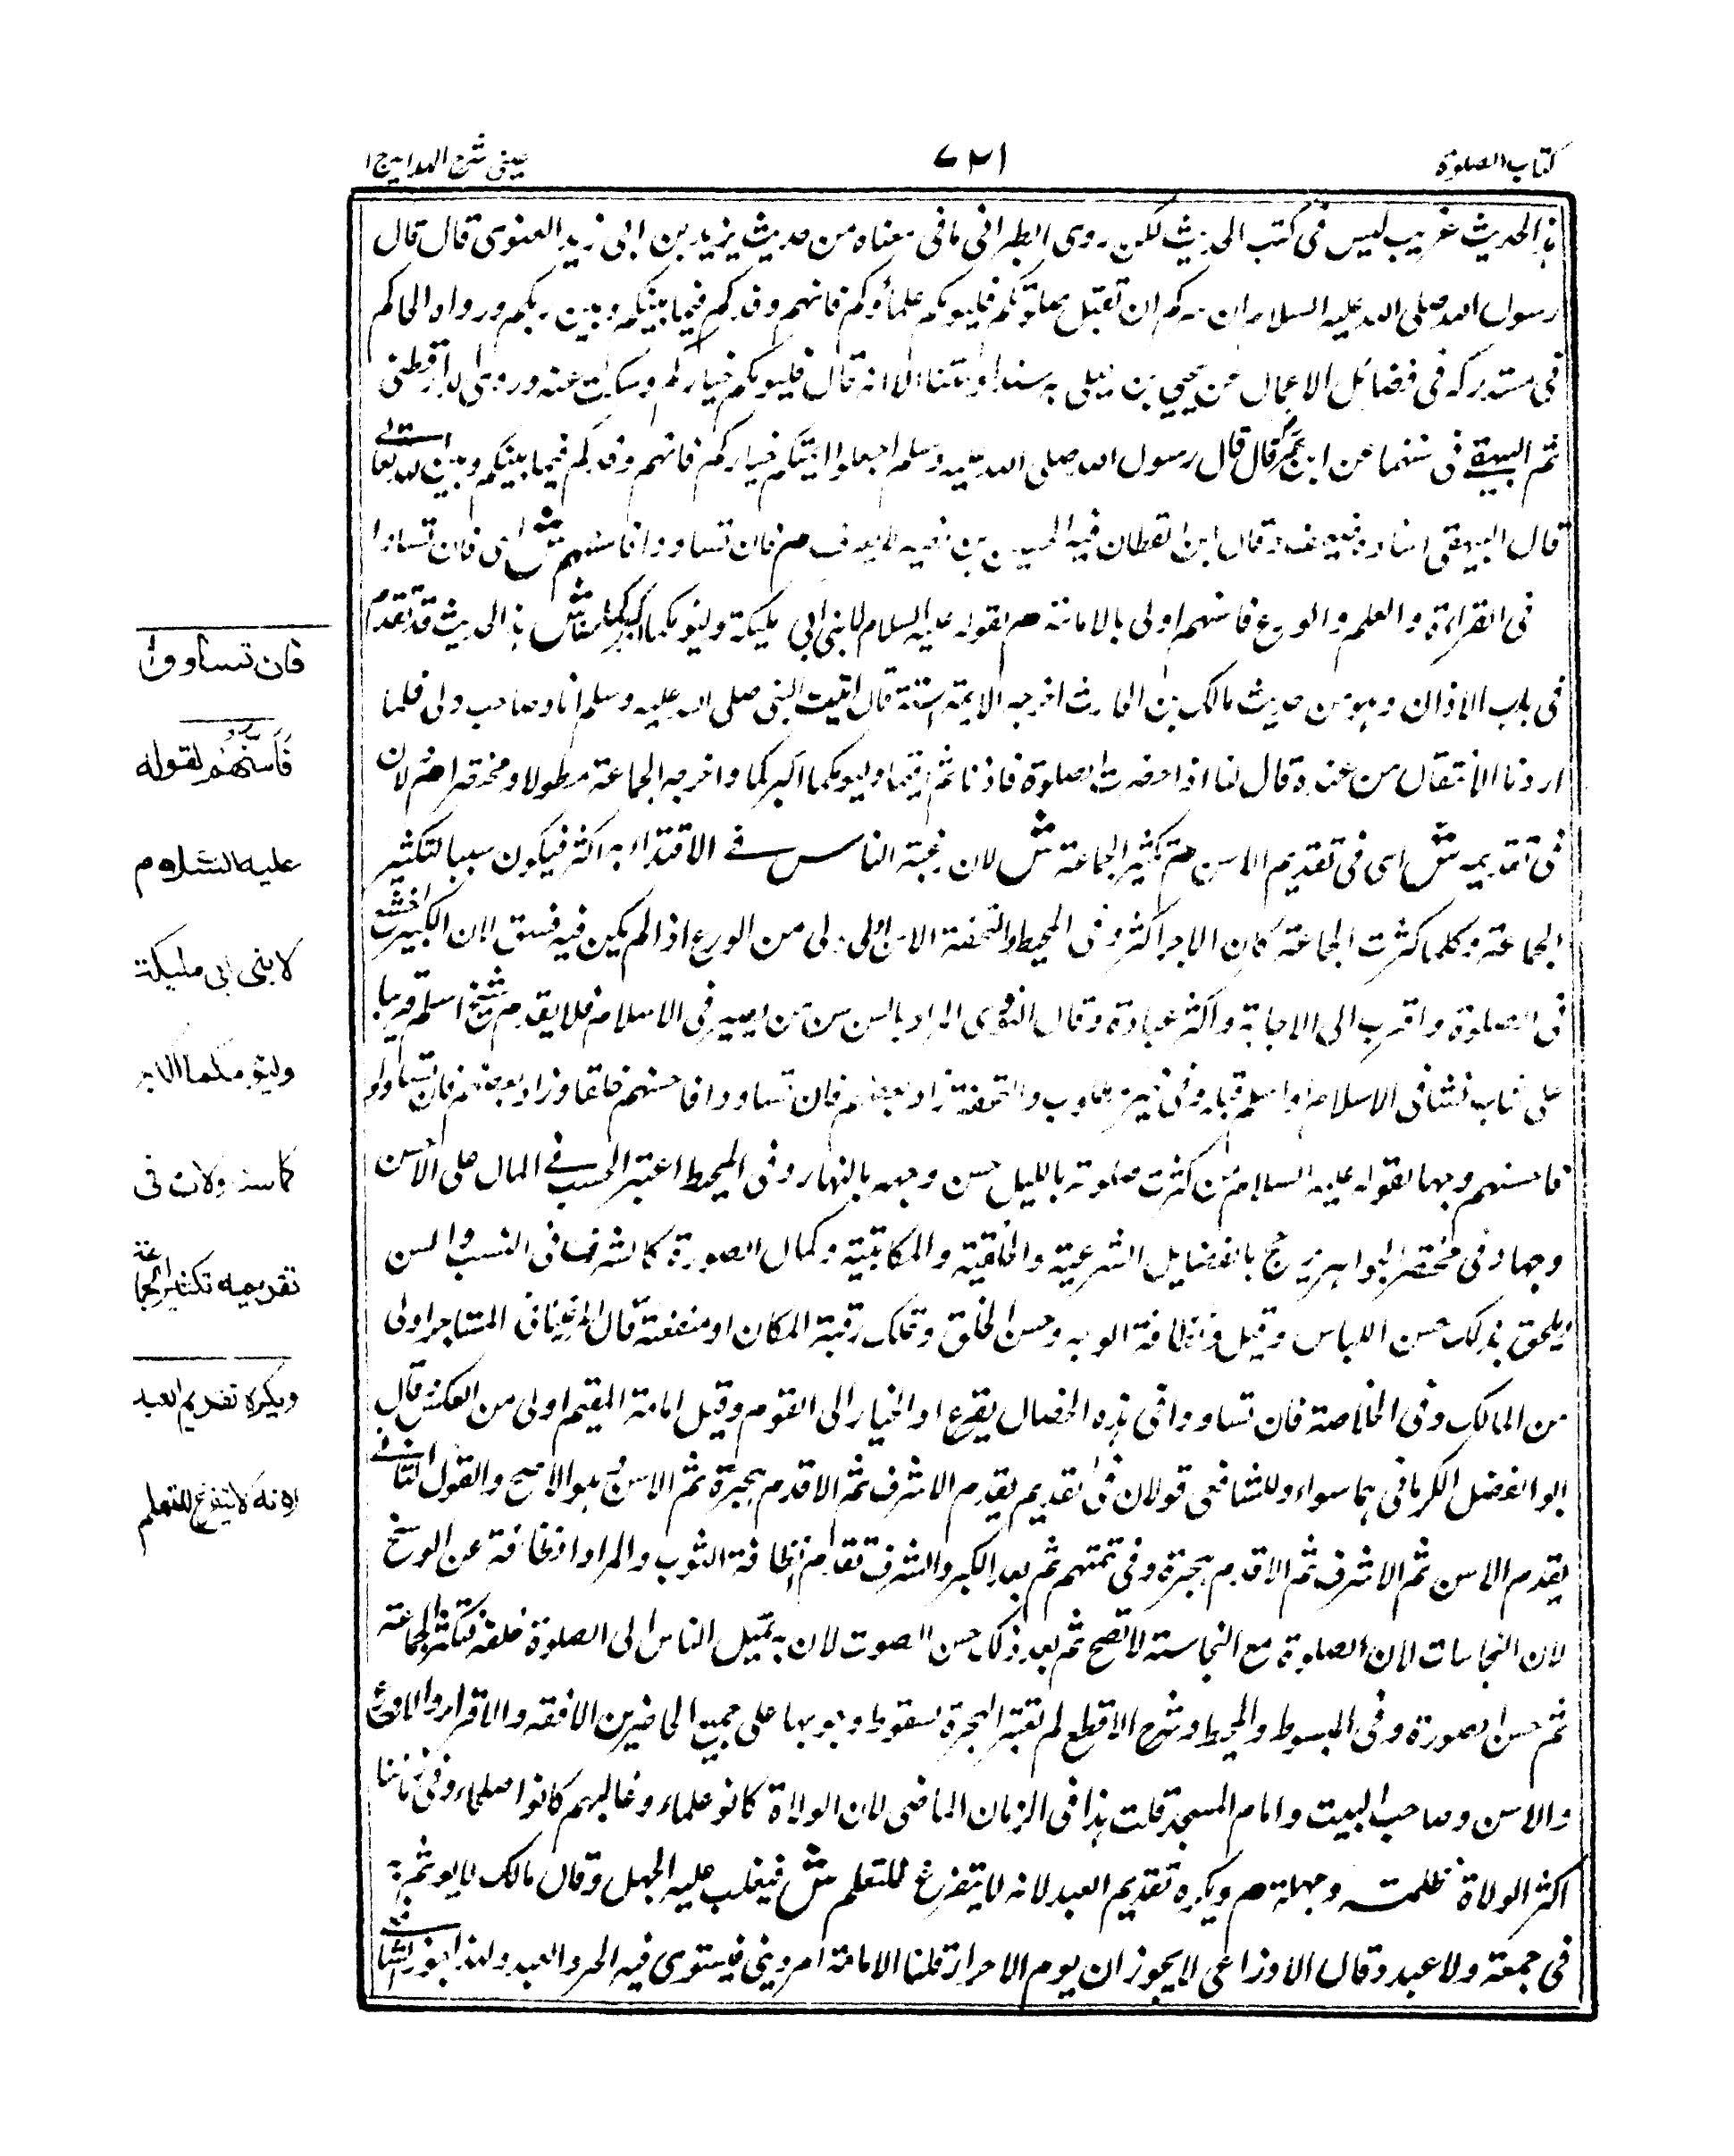 كتاب الصلوة
٧٢١
عينى شرح الهداية ج ١
هذا الحديث غريب ليس فى كتب الحديث لكن روى الطبرانى ما فى معناه من حديث يزيد بن ابى زيد الغنوى قال قال
رسول الله صلى الله عليه السلام ان سركم ان تقبل صلوتكم فليؤمكم علماؤكم فانهم وفدكم فيما بينكم وبين ربكم ورواه الحاكم
فى مستدركه فى فضائل الاعمال عن يحيى بن يعلى به سندا ومتنا الا انه قال فليؤمكم خياركم وسكت عنه وروى الدارقطنى
ثم البيهقى فى سننهما عن ابن عمر قال قال رسول الله صلى الله عليه وسلم اجعلوا ايمتكم خياركم فانهم وفدكم فيما بينكم وبين الله تعالى
قال البيهقى اسناده ضعيف وقال ابن القطان فيه الحسين بن نصير لا يعرف ص فان تساووا فاسنهم ش اى فان تساووا
فى القراءة والعلم والورع فاسنهم اولى بالامامة ص لقوله عليه السلام لابنى ابى مليكة وليؤمكما اكبركما سنا ش هذا الحديث قد تقدم
فى باب الاذان وهو من حديث مالك بن الحارث اخرجه الايمة الستة قال اتيت النبى صلى الله عليه وسلم انا وصاحب ولى فلما
اردنا الانتقال من عنده قال لنا اذا حضرت الصلوة فاذنا ثم اقيما وليومكما اكبركما واخرجه الجماعة مطولا ومختصرا ص لان
فى تقديمه ش اى فى تقديم الاسن ص تكثير الجماعة ش لان رغبة الناس فى الاقتداء به اكثر فيكون سببا لتكثير
الجماعة وكلما كثرت الجماعة كان الاجر اكثر وفى المحيط والتحفة الاسن اولى من الورع اذا لم يكن فيه فسق لان الكبير اخشع
فى الصلوة واقرب الى الاجابة واكثر عبادة وقال النووى المراد بالسن سن من يصير فى الاسلام فلا يقدم شيخ اسلم قريبا
على شاب نشا فى الاسلام او اسلم قبله وفى والتحفة زاد بعضهم فان تساووا فاحسنهم خلقا وزاد بعضهم فان تساووا
فاحسنهم وجها لقوله عليه السلام من كثرت صلوته بالليل حسن وجهه بالنهار وفى المحيط اعتبر الحسب فى المال على الاحسن
وجها وفى مختصر الجواهر يرجح بالفضايل الشرعية والخلقية والمكانية وكمال الصورة كالشرف فى النسب والسن
ويلحق بذلك حسن اللباس وقيل ونظافة الوجه وحسن الخلق وتملك رقبة المكان او منفعته قال المرغينانى المستاجر اولى
من المالك وفى الخلاصة فان تساووا فى هذه الخصال يقرع او الخيار الى القوم وقيل امامة المقيم اولى من العكس وقال
ابو الفضل الكرمانى هما سواء وللشافعى قولان فى تقديم يقدم الاشرف ثم الاقدم هجرة ثم الاسن وهو الاصح والقول الثانى
يقدم الاسن ثم الاشرف ثم الاقدم هجرة وفى تتمتهم ثم بعد الكبر والشرف تقدم نظافة الثوب والمراد نظافة عن الوسخ
لان النجاسات لان الصلوة مع النجاسة لا تصح ثم بعد ذلك حسن الصوت لان به تميل الناس الى الصلوة خلفه فتكثر الجماعة
ثم حسن الصورة وفى المبسوط والمحيط وشرح الاقطع لم تعتبر الهجرة لسقوط وجوبها على جميع الحاضرين الافقه والاقراء والاورع
والاسن وصاحب البيت وامام المسجد قلت هذا فى الزمان الماضى لان الولاة كانوا علماء وغالبهم كانوا صلحاء وفى زماننا
اكثر الولاة ظلمة وجهلة ص ويكره تقديم العبد لانه لا يتفرغ للتعلم ش فيغلب عليه الجهل وقال مالك لا يؤم
فى جمعة ولا عيد وقال الاوزاعى لا يجوز ان يوم الاحرار قلنا الامامة امر دينى فيستوى فيه الحر والعبد ولهذا
فان تساووا
فاسنهم لقوله
عليه السلام
لابنى ابى مليكة
وليؤمكما اكبر
كما سنا ولان فى
تقديمه تكثير الجماعة
ويكره تقديم العبد
لانه لا يتفرغ للتعلم